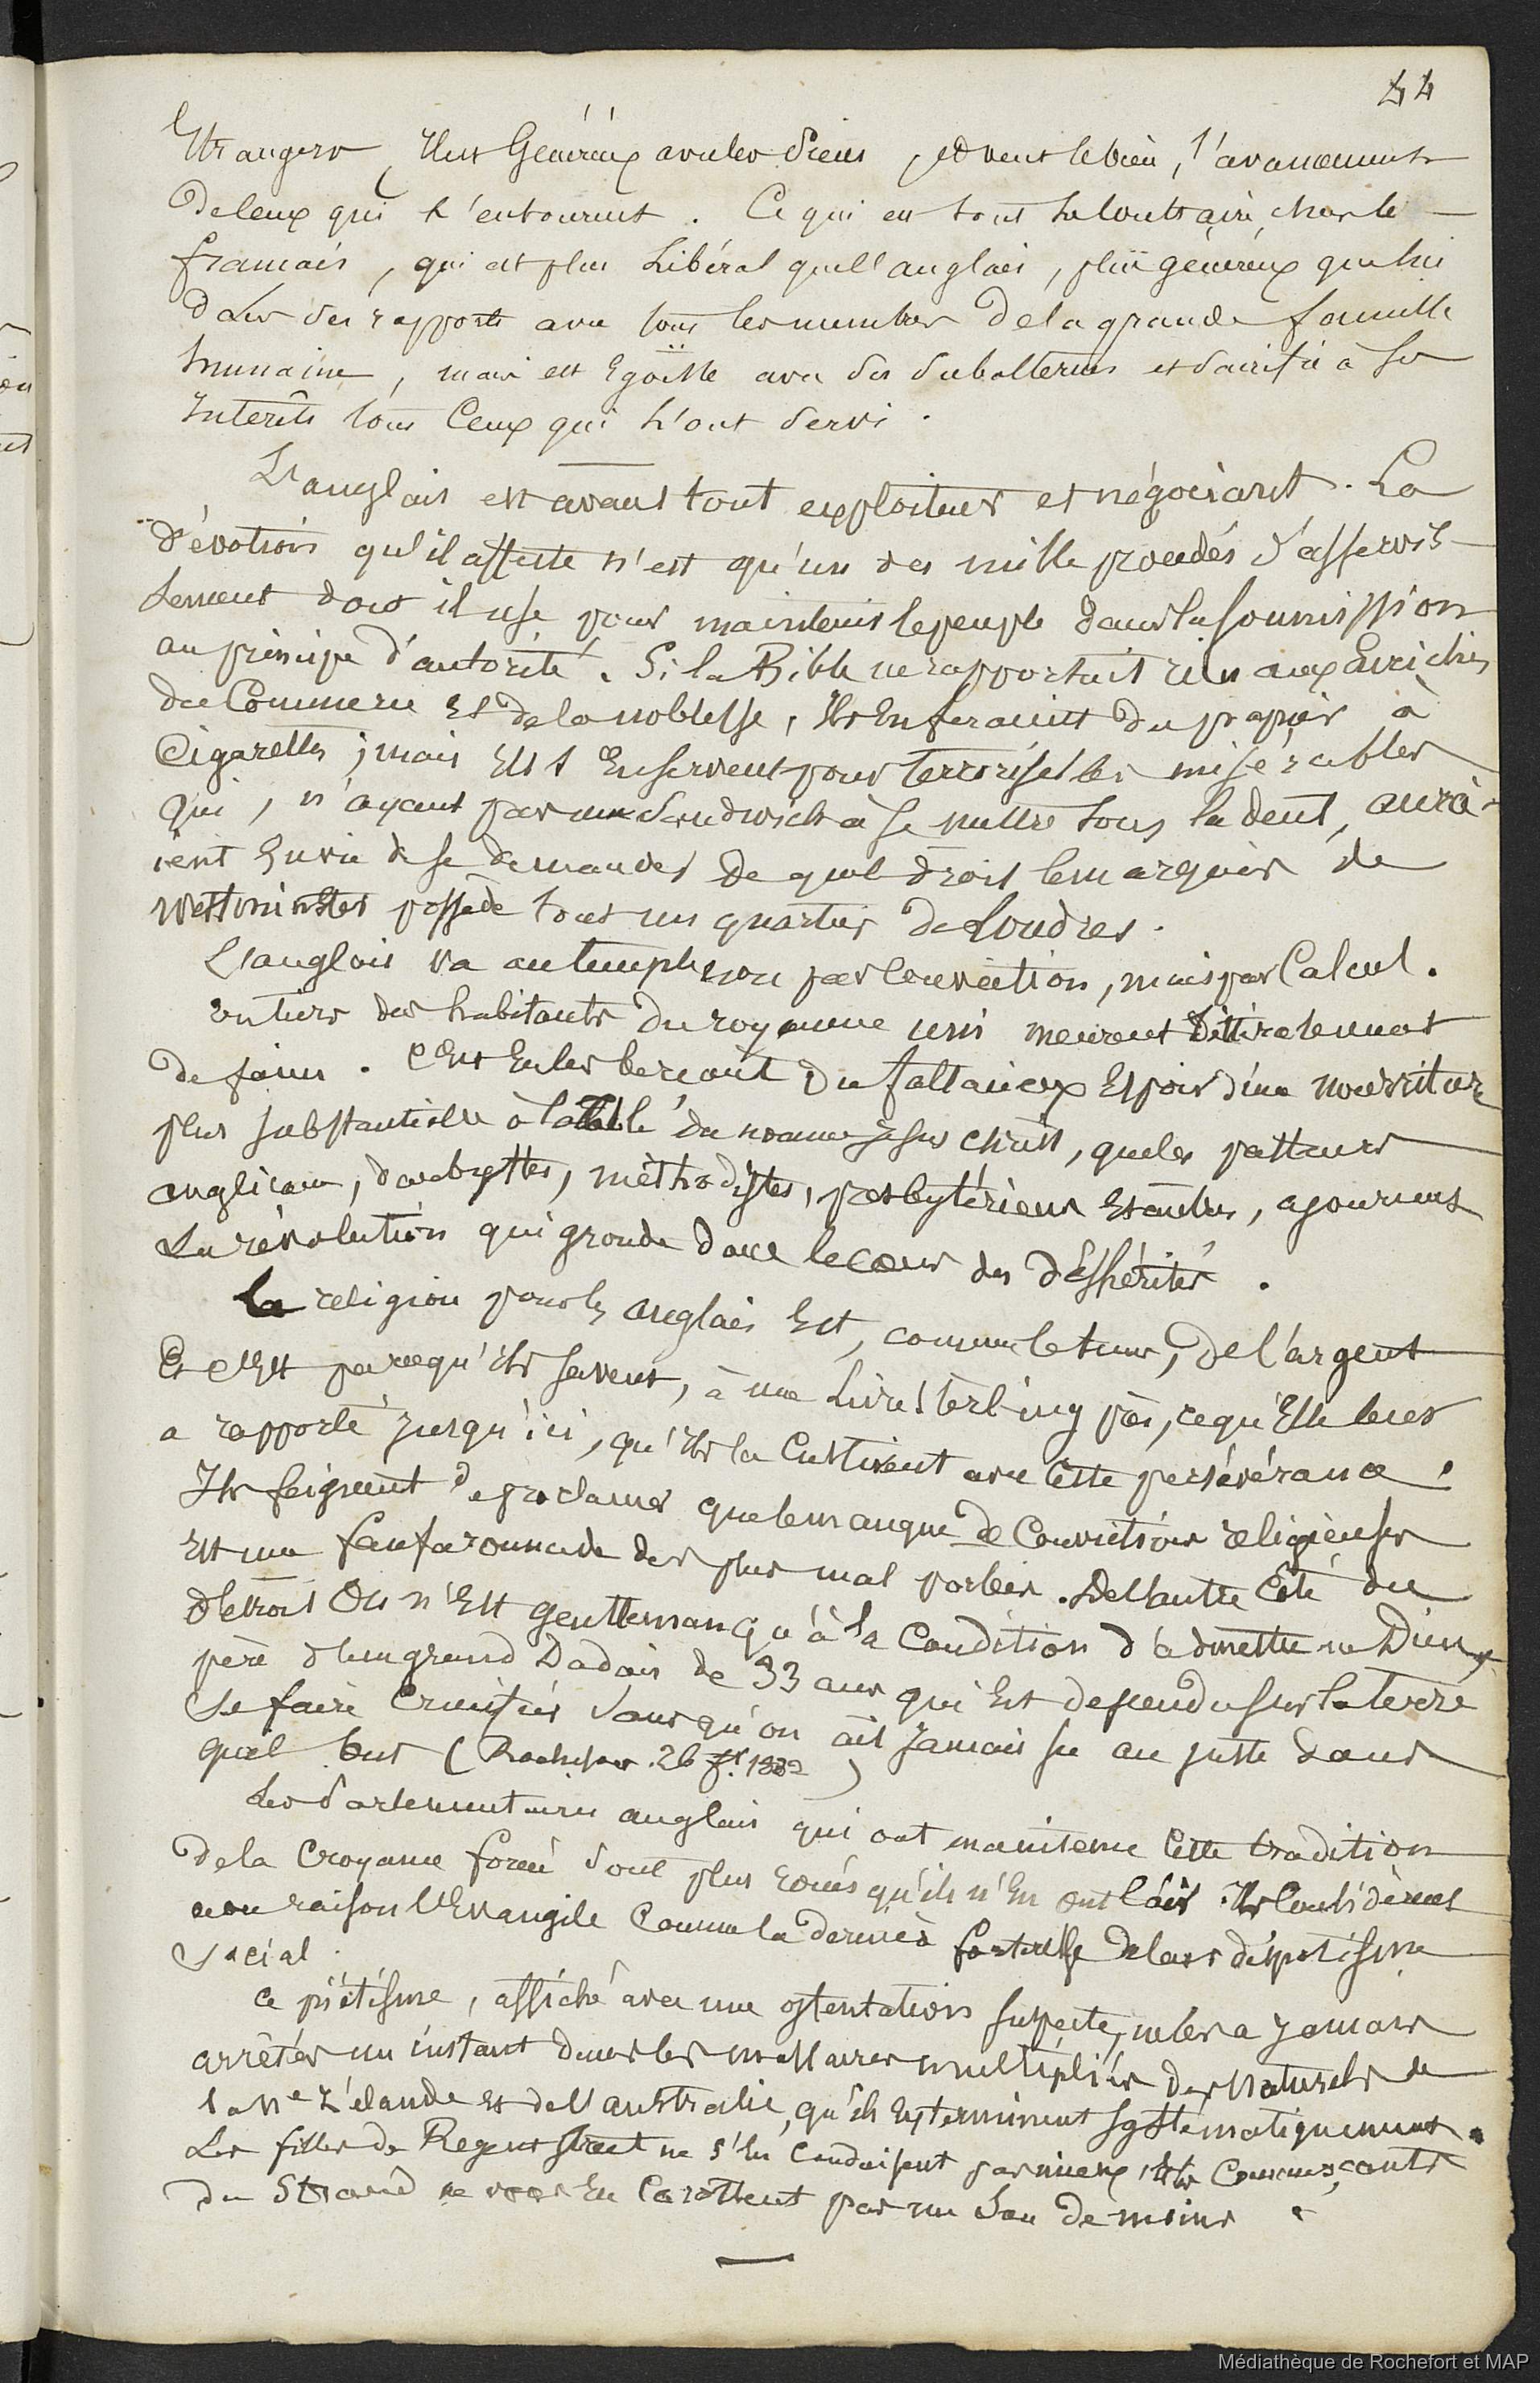 44
Etrangers, Il est Généreux avec les siens, et veut le bien, l'avancement
de ceux qui l'entourent. Ce qui est tout le contraire chez le
français, qui est plus Libéral que l'anglais, plus généreux que lui
dans ses rapports avec tous les membres de la grande famille
humaine, mais est Egoïste avec ses subalternes et sacrifie à ses
Intérêts tous Ceux qui l'ont servi.
L'anglais est avant tout exploiteur et négociant. La
dévotion qu'il affecte n'est qu'un des mille procédés d'asservis-
sement dont il use pour maintenir le peuple dans la soumission
au principe d'autorité. Si la Bible ne rapportait rien aux Enrichis
du Commerce et de la noblesse, Ils En feraient du papier à
Cigarettes ; mais Ils s'En servent pour terroriser les misérables
qui, n'ayant pas un Sandwich à se mettre sous la dent, aura-
ient Envie de se demander de quel droit le marquis de
Westminster possède tout un quartier de Londres.
L'anglais va au temple non par Conviction, mais par Calcul.
un tiers des habitants du royaume uni meurent littéralement
de faim. C'Est En les berçant du fallacieux Espoir d'une nourriture
plus substantielle à la table du nommé Jesus Christ, que les pasteurs
anglicans, darbystes, méthodistes, presbytériens et autres, ajournent
La révolution qui gronde dans le cœur des déshérités.
La religion pour les anglais Est, comme le tems, de l'argent
Et c'Est parcequ'ils savent, à une Livre sterling près, ce qu'Elle leur
a rapporté jusqu'ici, qu'Ils la Cultivent avec Cette persévérance.
Ils feignent de proclamer que le manque de Convictions religieuses
Est une fanfaronnade des plus mal portées. De l'autre Côté du
détroit On n'Est gentleman qu'à la Condition d'admettre un Dieu,
père d'un grand Dadais de 33 ans qui Est descendu sur la terre
se faire Crucifier sans qu'on ait Jamais su au juste dans
quel but (Rochefort 26 1882)
Les Parlementaires anglais qui ont maintenu Cette tradition
de la Croyance forcée sont plus roués qu'ils n'En ont l'air. Ils Considèrent
avec raison l'Evangile Comme la dernière forteresse de leur despotisme
Social.
Ce piétisme, affiché avec une ostentation suspecte, ne les a Jamais
arrêtés un instant dans les massacres multipliés des Naturels de
la Nle Zélande et de l'australie, qu'ils Exterminent systématiquement.
Les filles de Regent Street ne s'En Conduisent pas mieux, et les Commerçants
du Strand ne vous En Carottent pas un sou de moins.
Médiathèque de Rochefort et MAP